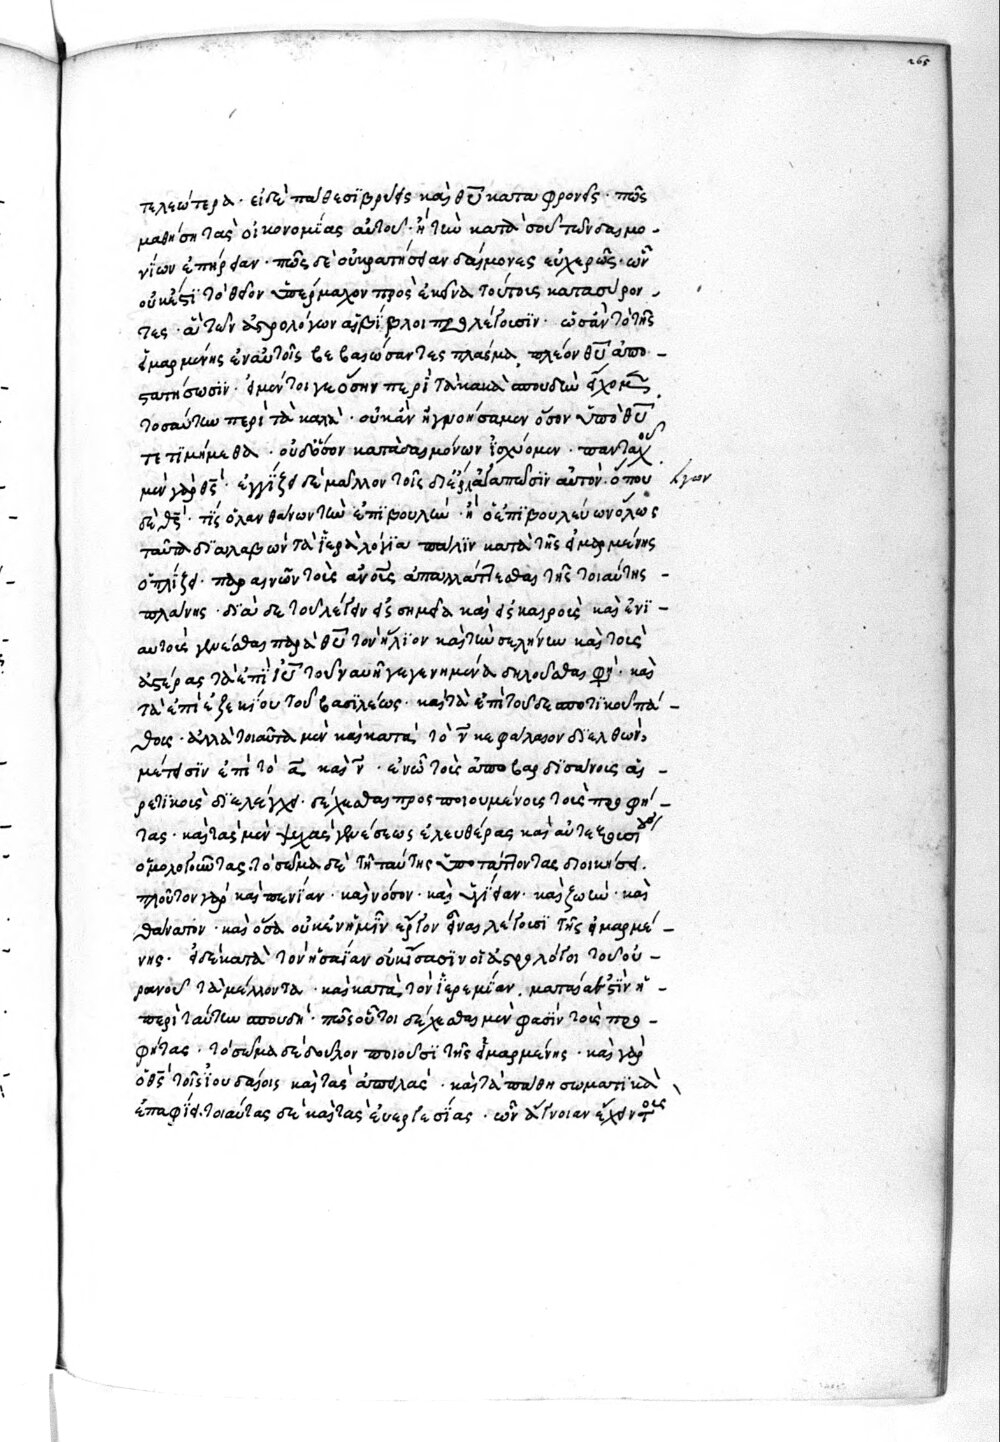 265
τελεώτερα · εἰ δὲ πάθεσι βρύεις καὶ θῡ καταφρονεῖς · πῶς
μαθήσῃ τὰς οἰκονομίας αὐτοῦ · ἢ τὴν κατὰ σοῦ τῶν δαιμο-
νίων ἔπηρειαν · πῶς δὲ οὐ κρατήσειαν δαίμονες εὐχερῶς · ὧν
οὐκ ἔστι τὸ θεῖον ὑπέρμαχον πρὸς ἐκεῖνα τούτοις κατασύρον-
τες · ἃ τῶν ἀστρολόγων αἱ βίβλοι προλέγουσιν · ὡς ἂν τὸ τῆς
εἱμαρμένης ἐν αὐτοῖς βεβαιώσαντες πλάσμα, πλέον θῡ ἀπο-
στατήσωσιν · εἰ μέντοι γε ὅσην περὶ τὰ κακὰ σπουδὴν ἔχομεν,
τοσαύτην περὶ τὰ καλὰ · οὐκ ἂν ἠγνοήσαμεν ὅσον ὑπὸ θῡ
τετιμήμεθα · οὐδ' ὅσον κατὰ δαιμόνων ἰσχύομεν · πανταχοῦ
μὲν γὰρ θς · ἐγγίζει δὲ μᾶλλον τοῖς ἀγαπῶσιν αὐτόν · ὅπου
δὲ θς · τίς ὅλων θανόντων ἐπιβουλὴ · ἢ ὁ ἐπιβουλεύων ὅλως
ταῦτα διαλαβὼν τὰ ἱερὰ λόγια πάλιν κατὰ τῆς εἱμαρμένης
ὁπλίζει · παραινῶν τοῖς ἀνοις ἀπαλλάττεσθαι τῆς τοιαύτης
πλάνης · διὰ δὲ τοῦ λέγειν εἰς σημεῖα καὶ εἰς καιροὺς καὶ ἐνι-
αυτοὺς γενέσθαι παρὰ θῡ τὸν ἥλιον καὶ τὴν σελήνην καὶ τοὺς
ἀστέρας τὰ ἐπὶ ιῡ τοῦ ναυῆ γεγενημένα δηλοῦσθαι φησὶ · καὶ
τὰ ἐπὶ ἐζεκίου τοῦ βασιλέως · καὶ τὰ ἐπὶ τοῦ δεσποτικοῦ πά-
θους · ἀλλὰ τοιαῦτα μὲν καὶ κατὰ τὸ ν κεφάλαιον διελθὼν,
μέτεισιν ἐπὶ τὸ α καὶ ν · ἐν ᾧ τοὺς ἀπὸ βαρδισάνους αἱ-
ρετικοὺς διελέγχει · δέχεσθαι προσποιουμένους τοὺς προφή-
τας · καὶ τὰς μὲν ψυχὰς γενέσεως ἐλευθέρας καὶ αὐτεξουσίους
ὁμολογοῦντας · τὸ σῶμα δὲ τῇ ταύτης ὑποτάττοντας διοικήσει.
πλοῦτον γὰρ καὶ πενίαν · καὶ νόσον · καὶ ὑγίειαν · καὶ ζωὴν · καὶ
θάνατον · καὶ ὅσα οὐκ ἐν ἡμῖν ἔργον εἶναι λέγουσι τῆς εἱμαρμέ-
νης · εἰ δὲ κατὰ τὸν ἡσαΐαν οὐκ ἴσασιν οἱ ἀστρολόγοι τοῦ οὐ-
ρανοῦ τὰ μέλλοντα · καὶ κατὰ τὸν ἱερεμίαν, ματαία ἐστὶν ἡ
περὶ ταύτην σπουδὴ · πῶς οὗτοι δέχεσθαι μὲν φασὶν τοὺς προ-
φήτας · τὸ σῶμα δὲ δοῦλον ποιοῦσι τῆς εἱμαρμένης · καὶ γὰρ
ὁ θς τοῖς ἰουδαίοις καὶ τὰς ἀπειλὰς · καὶ τὰ πάθη σωματικὰ
ἐπαφίει · τοιαύτας δὲ καὶ τὰς εὐεργεσίας · ὧν ἄγνοιαν ἔχειν τοὺς